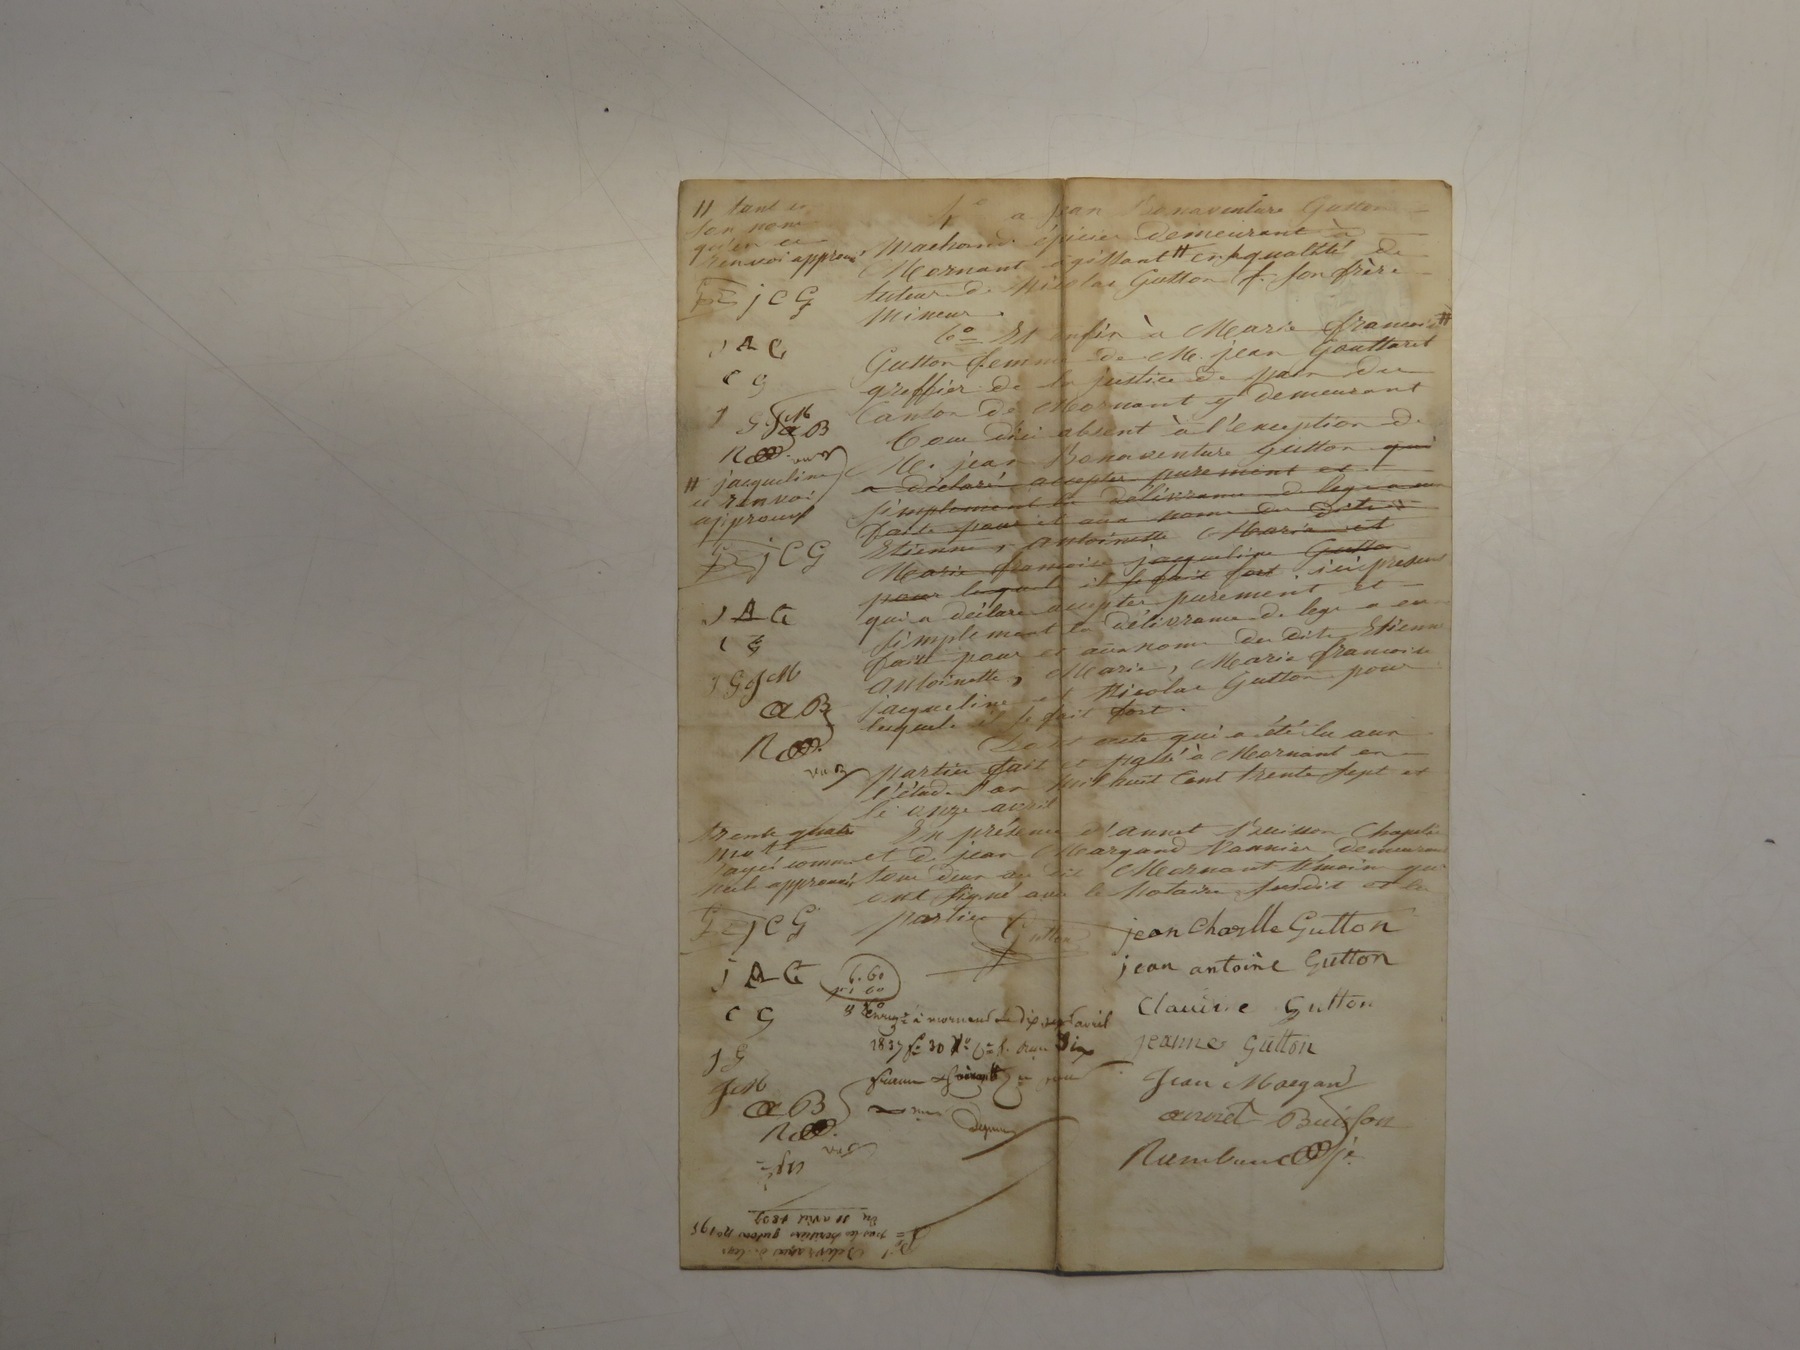 # tant en
son nom
qu'en ce
renvoi approuvé
J C G
J A G
C G
J G J M
a B
# jacqueline
ce renvoi
approuvé
J C G
J A G
C G
J G J M
a B
trente quatre
mots
rayés comme
nuls approuvés
J C G
J A G
C G
J G
J M
a B
a jean Bonaventure Gutton
Marchand épicier demeurant à
Mornant agissant # en qualité de
tuteur de Nicolas Gutton f. son frère
Mineur.
6° Et enfin à Marie françoise #
Gutton femme de M. jean Gouttaret
greffier de la justice de paix du
Canton de Mornant y demeurant
Tous ici absent à l'exception de
M. jean Bonaventure Gutton qui
a déclaré accepter purement et
simplement la délivrance de legs a eux
faite pour et aux noms des dits
Etienne, Antoinette Marie et
Marie françoise jacqueline Gutton
pour lesquels il se fait fort ici présent
qui a déclaré accepter purement et
simplement la délivrance de legs a eux
faite pour et aux noms des dits Etienne
Antoinette, Marie, Marie françoise
jacqueline et Nicolas Gutton pour
lesquels il se fait fort.
Dont acte qui a été lu aux
parties fait et passé à Mornant en
l'étude l'an mil huit cent trente sept et
le onze avril
En présence d'annet Buisson Chapelier
et de jean Margand Vannier demeurant
tous deux au dit Mornant témoins qui
ont signé avec le Notaire susdit et les
parties
Gutton
jean Charlle Gutton
jean antoine Gutton
Claudine Gutton
jeanne Gutton
Jean Margand
annet Buisson
6.60
Enregé à mornant le dix sept avril
1837 fo 30
Délivrance de legs
par les héritiers gutton no 195
Du 11 avril 1837